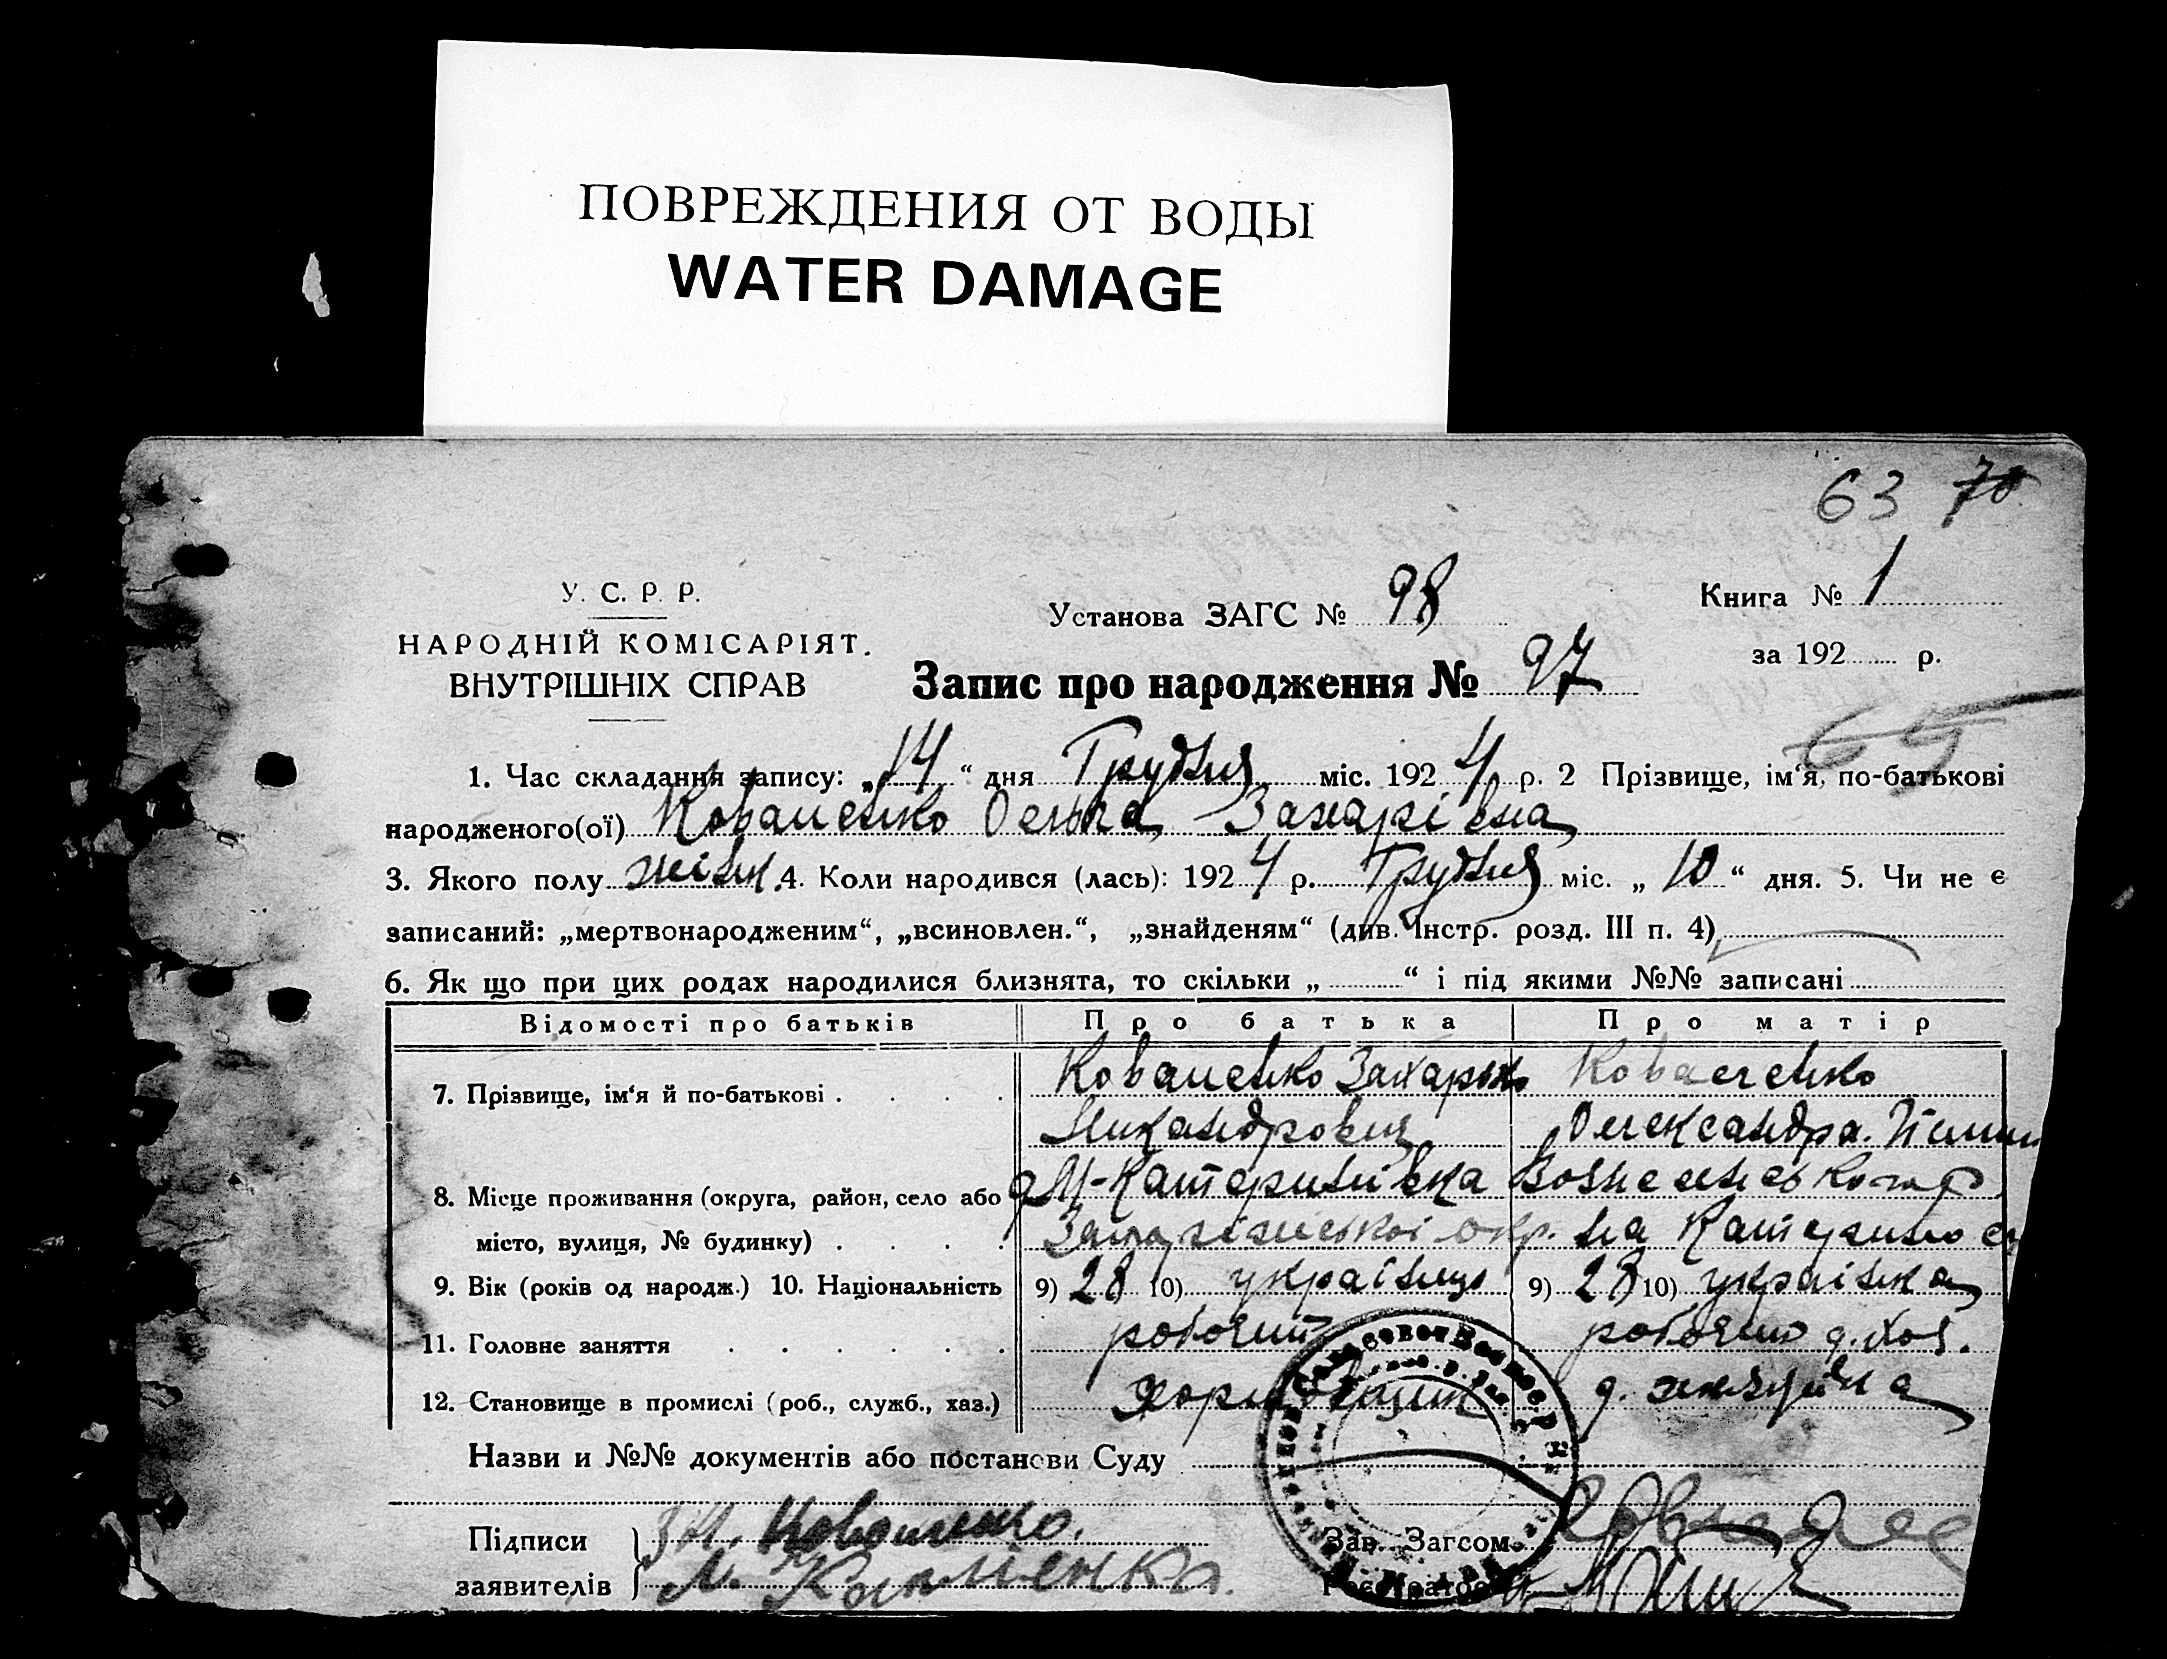 ПОВРЕЖДЕНИЯ ОТ ВОДЫ
WATER DAMAGE
63 70
У. С. Р. Р.
НАРОДНІЙ КОМІСАРІЯТ.
ВНУТРІШНІХ СПРАВ
Установа ЗАГС № 98
Книга № 1
за 192 р.
Запис про народження № 97
1. Час складання запису: „14“ дня Грудня міс. 1924 р. 2 Прізвище, ім'я, по-батькові
народженого(ої) Коваленко Ольга Захарівна
3. Якого полу жіноч. 4. Коли народився (лась): 1924 р. Грудня міс. „10“ дня. 5. Чи не є
записаний: „мертвонародженим“, „всиновлен.“, „знайденям“ (див. Інстр. розд. III п. 4)
6. Як що при цих родах народилися близнята, то скільки „ “ і під якими №№ записані
Відомості про батьків Про батька Про матір
7. Прізвище, ім'я й по-батькові Коваленко Захарько Коваленко
Никандрович Олександра.
8. Місце проживання (округа, район, село або М-Катеринівка
місто, вулиця, № будинку) Запорізської окр. на
9. Вік (років од народж.) 10. Національність 9) 28 10) українець 9) 28 10) українка
11. Головне заняття робочий робочий д. хоз.
12. Становище в промислі (роб., служб., хаз.)
Назви и №№ документів або постанови Суду
Підписи Коваленко.
заявителів
Зав. Загсом